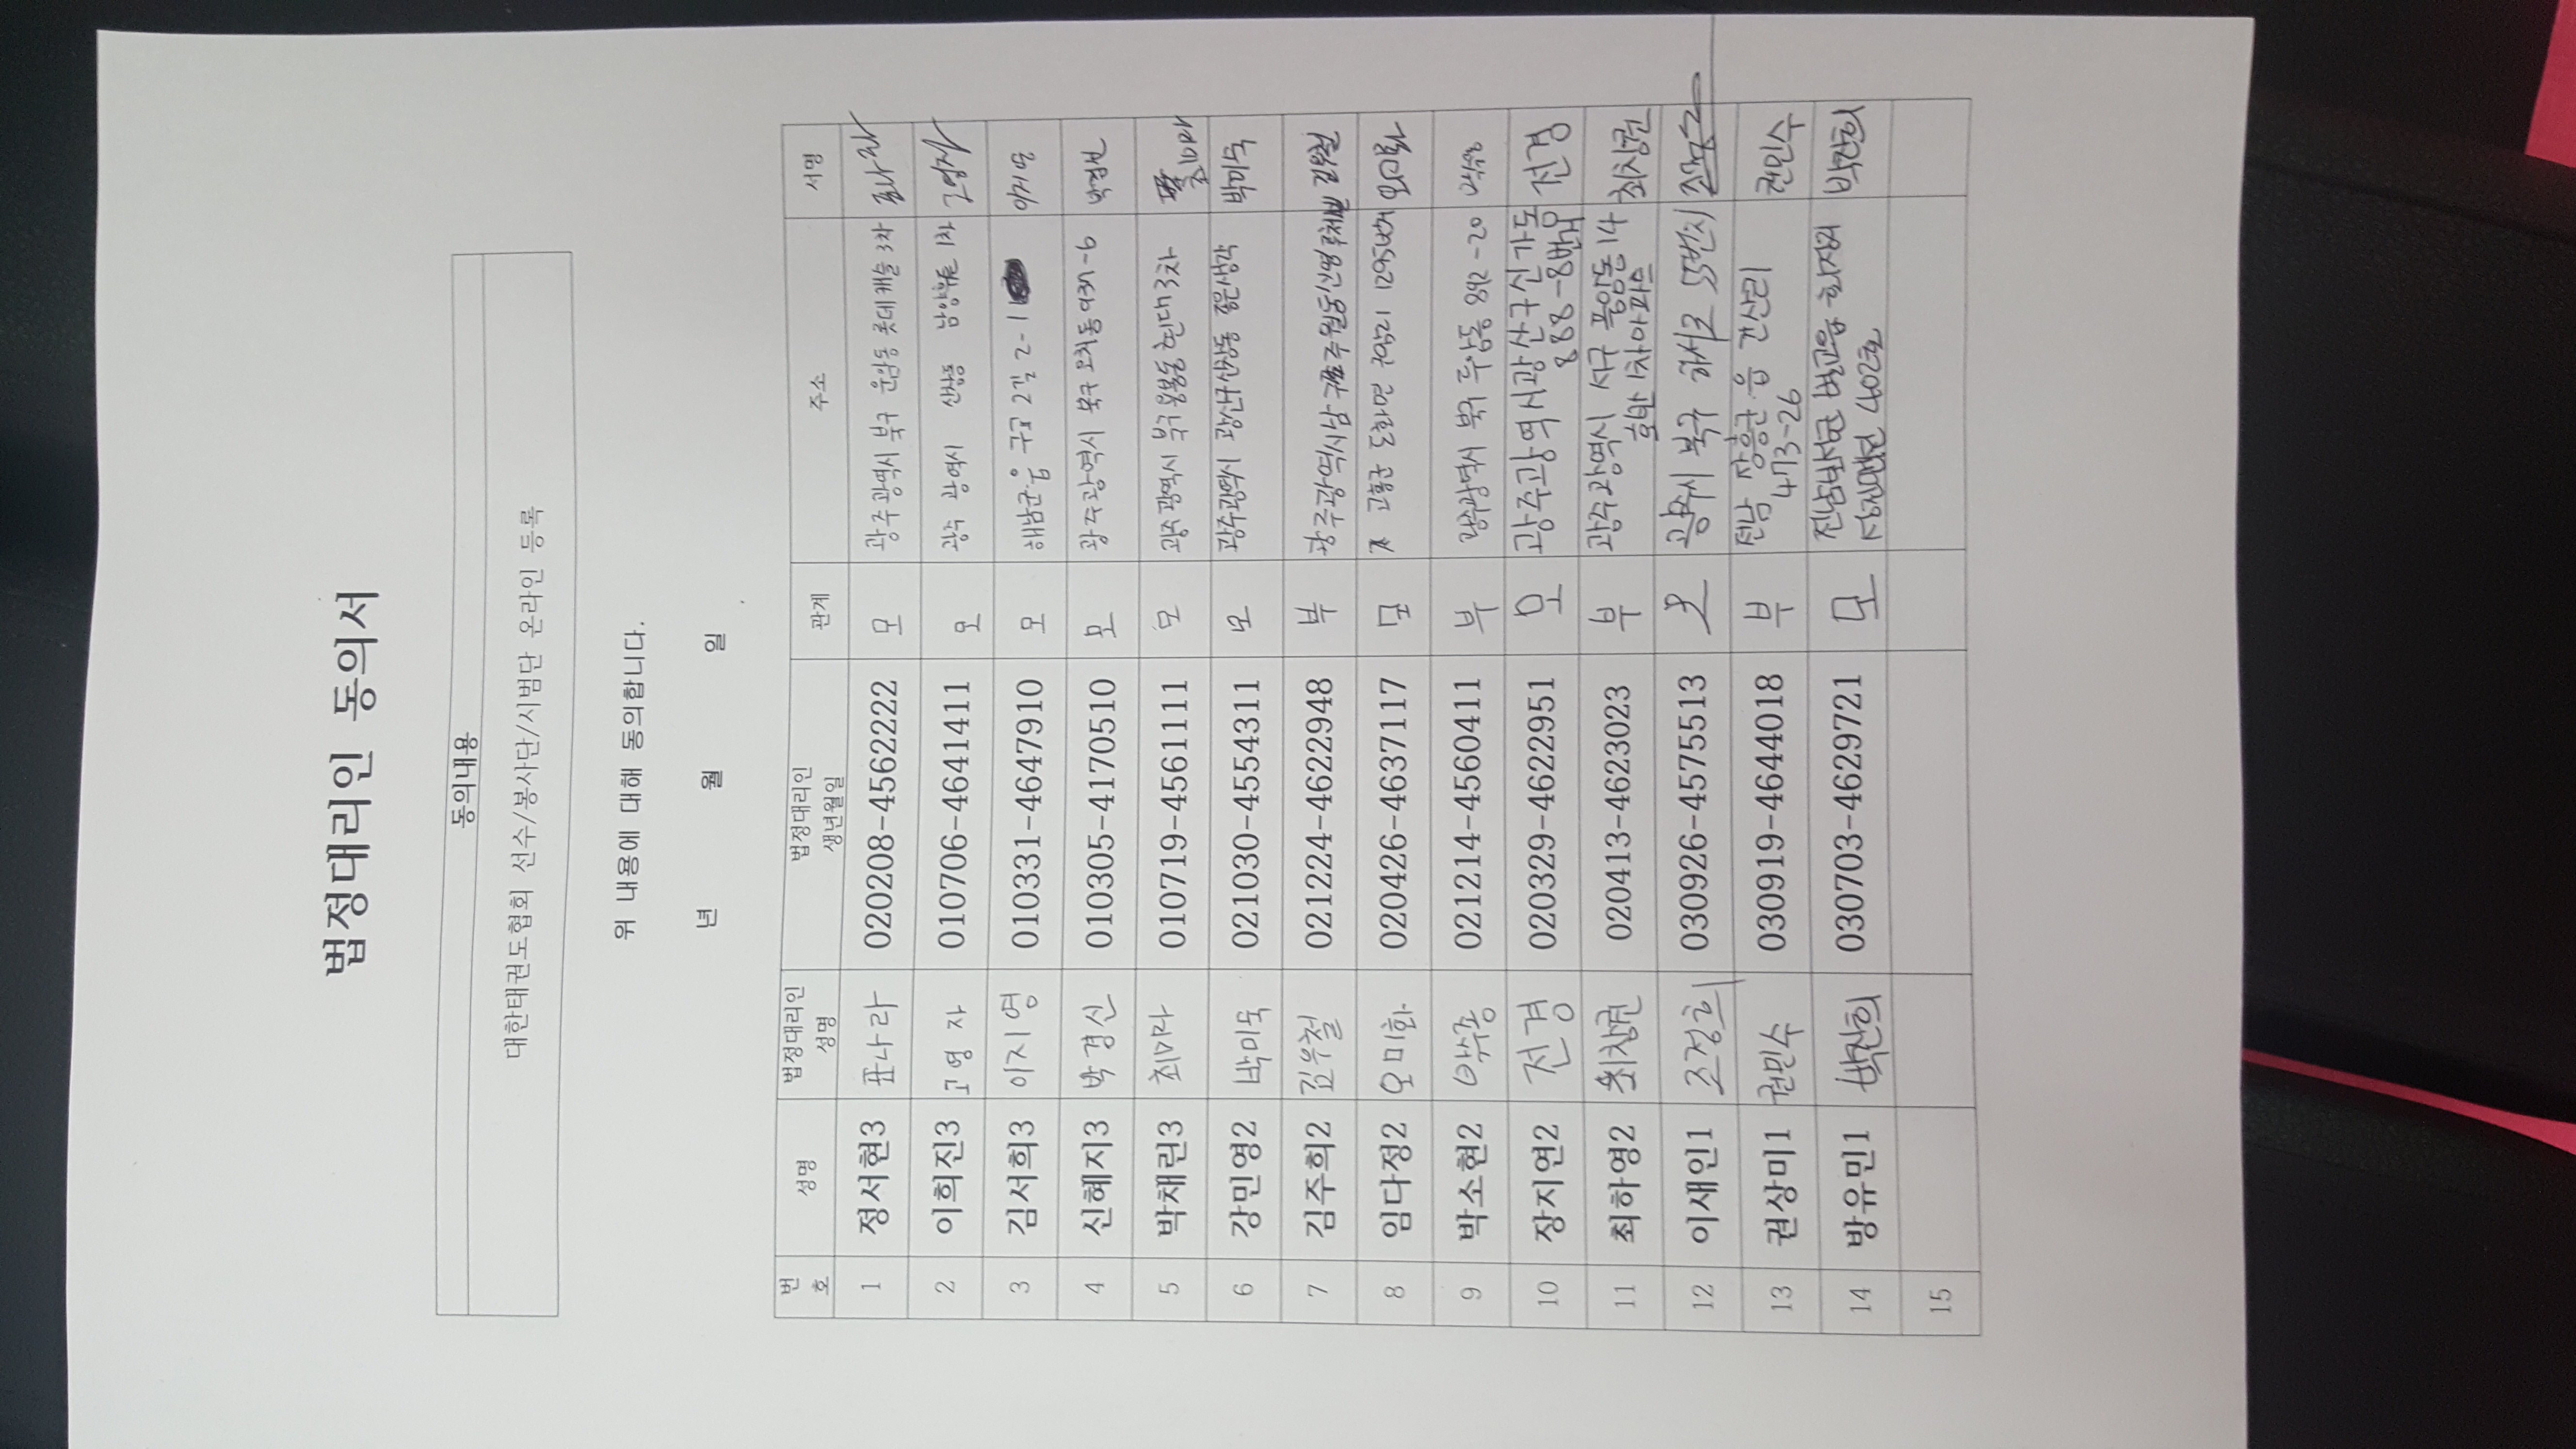 법정대리인 동의서
동의내용
대한태권도협회 선수/봉사단/시범단 온라인 등록
위 내용에 대해 동의합니다.
년 월 일
번호 성명 법정대리인 성명 법정대리인 생년월일 관계 주소 서명
1 정서현3 표나라 020208-4562222 모 광주광역시 북구 운암동 롯데캐슬 3차 표나라
2 이희진3 고영자 010706-4641411 모 광주 광역시 산월동 남양휴튼 1차 고영자
3 김서희3 이지영 010331-4647910 모 해남군읍 구교2길 2-1
4 신혜지3 박경신 010305-4170510 모 광주광역시 북구 오치동
5 박채린3 최미라 010719-4561111 모 광주광역시 북구 용봉동 현대3차
6 강민영2 박미숙 021030-4554311 모 광주광역시 광산구 산월동 젊은생각 박미숙
7 김주희2 김우철 021224-4622948 부 광주광역시 남구 주월동 김우철
8 임다정2 오미화 020426-4637117 모 고흥군 도화면
9 박소현2 021214-4560411 부 광주광역시 북구 두암동 892-20
10 장지연2 전경 020329-4622951 모 광주광역시 광산구 신가동 888-8번지 전경
11 최하영2 최창권 020413-4623023 부 광주광역시 서구 풍암동 14
12 이세인1 조정희 030926-4575513 모 광주시 북구
13 권상미1 권민수 030919-4644018 부 전남 장흥군 읍 관산리 473-26 권민수
14 방유민1 박진희 030703-4629721 모 전남 화순군 화순읍 박진희
15